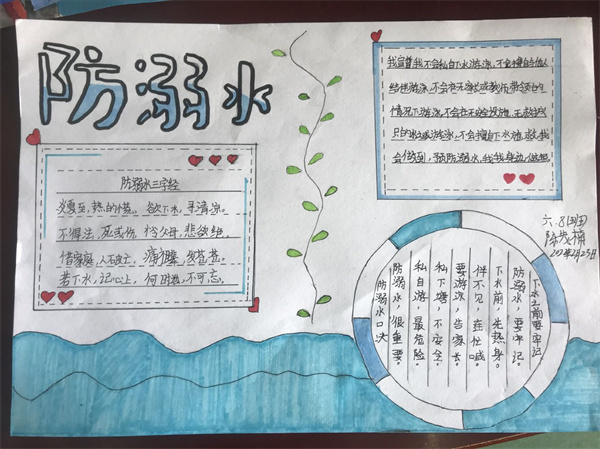 防溺水
防溺水三字经
炎夏至，热的慌。欲下水，寻清凉。
不得法，死或伤 父母，悲欲绝。
惜家庭，人不在，痛襟，发苍苍。
若下水，记心上，何时，不可忘。
我宣誓我不会私自下水游泳，不会擅自与他人
结伴游泳，不会在无家长或教师带领的
情况下游泳，不会在不安全设施、无救援
的水域游泳，不会擅自下水施救，我
会做到，预防溺水，我
六.8班
下水之前要牢记
防溺水，要牢记。
下水前，先热身。
伴不见，在忙喊。
要游泳，告家长。
私下塘，不安全。
私自游，最危险。
防溺水，很重要。
防溺水口决